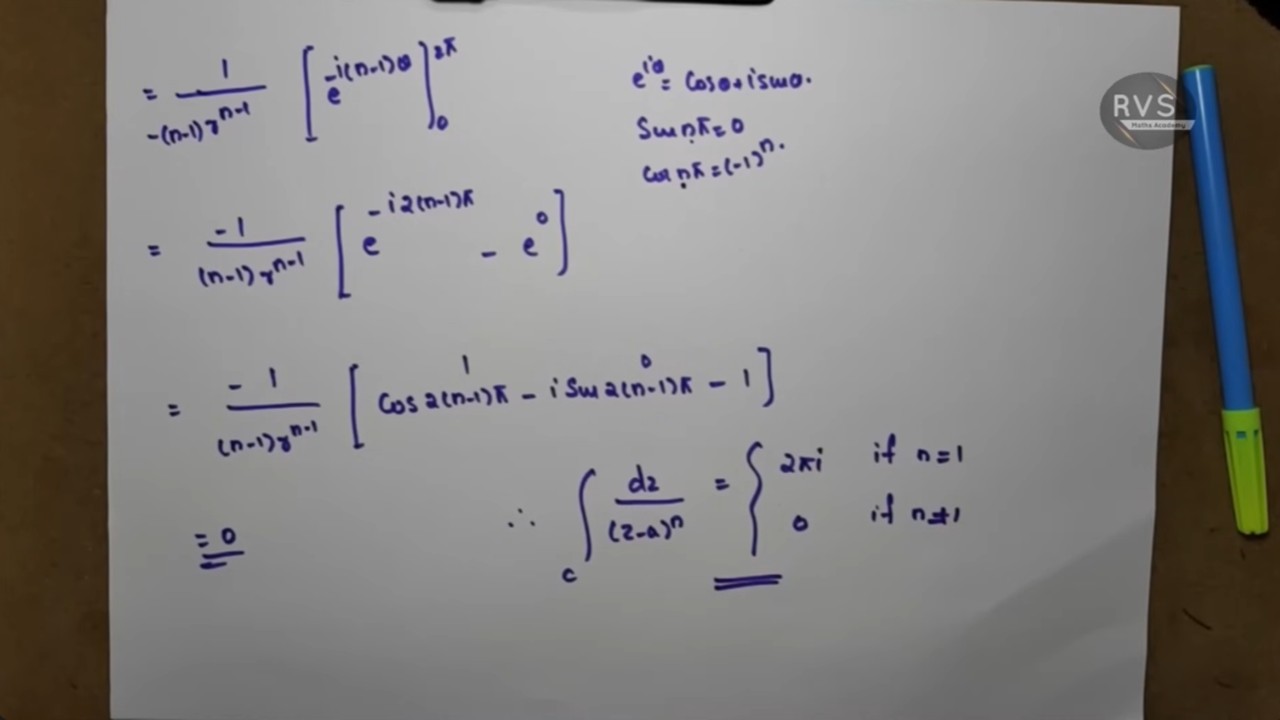 = 1 / -(n-1) r^{n-1} [ e^{-i(n-1)θ} ]_0^{2π}
e^{iθ} = Cosθ + i sinθ.
Sin nπ = 0
Cos nπ = (-1)^n.
= -1 / (n-1) r^{n-1} [ e^{-i2(n-1)π} - e^0 ]
1 0
= -1 / (n-1) r^{n-1} [ Cos 2(n-1)π - i Sin 2(n-1)π - 1 ]
= 0
∴ ∫_C dz / (z-a)^n = { 2πi if n = 1
0 if n ≠ 1
RVS
Maths Academy